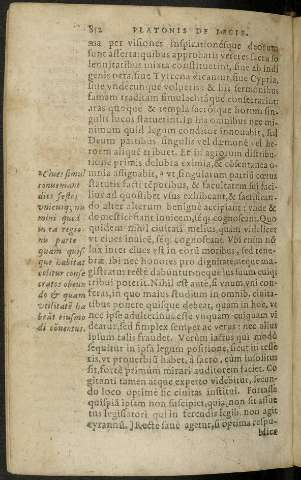 812 PLATONIS DE LEGIB.
ma per visiones inspirationesque deorum
sunt asserta: quibus approbatis veteres sacra so
lennitatibus mixta constituerint, siue ab indi
genis orta, siue Tyrrena vicanur, siue Cypria,
siue vndecunque volueris: & his sermonibus
famam traditam simulachráque consecrarint:
aras quoque & templa sacros que horum sin-
gulis lucos statuerint. In his omnibus nec mi
nimum quid legum conditor innouabit, sed
Deum partibus singulis vel dæmonē vel he-
roem aliquē tribuet. Et in agrorum distribu-
tione primis delubra eximia, & cōsentanea o-
mnia assignabit, a vt singularum partiū cœtus
statutis facti tēporibus, & facultatem sui faci-
lius ad quoslibet vsus exhibeant, & sacrifican-
do alter alterum benigne accipiant: vtque
domesticè fiant inuicem, séq; cognoscant. Quo
quidem nihil ciuitati melius, quam videlicet
vt ciues inuicē, séq; cognoscant. Vbi enim nō
lux inter ciues est in eorū moribus, sed tene-
bræ, ibi nec honores pro dignitate, neque ma-
gistratus rectè dabuntur, neque ius suum cuiq;
tribui poterit. Nihil est aūt, si vnum vni con-
feras, in quo maius studium in omnib. ciuita-
tibus ponere quisque debeat, quam in hoc, vt
nec ipse adulterinus esse vnquam cuiquam vi
deatur, sed simplex semper ac verus: nec alius
ipsum talis fraudet. Verùm iactus qui modò
sequitur in ipsa legum positione, sicut in tesse
ris, vt prouerbiū habet, à sacro, cùm insolitus
sit, fortè primùm mirari auditorem faciet. Co
gitanti tamen atque experto videbitur, secun-
do loco optimè hic ciuitas institui. Fortasse
quispiā ipsam non suscipiet, quia non sit assue
tus legislatori qui in ferendis legib. non agit
tyrannū.] Rectè sanè agetur, si optima respu-
blica
a Ciues simul
conueniant
dies festos
vnicuiq; nu
mini quod
in ea regio-
nu parte
quam quis-
que habitat
colitur conse
cratos obeun
do & quam
vtilitatē ha
beāt eiusmo
di cōuentus.